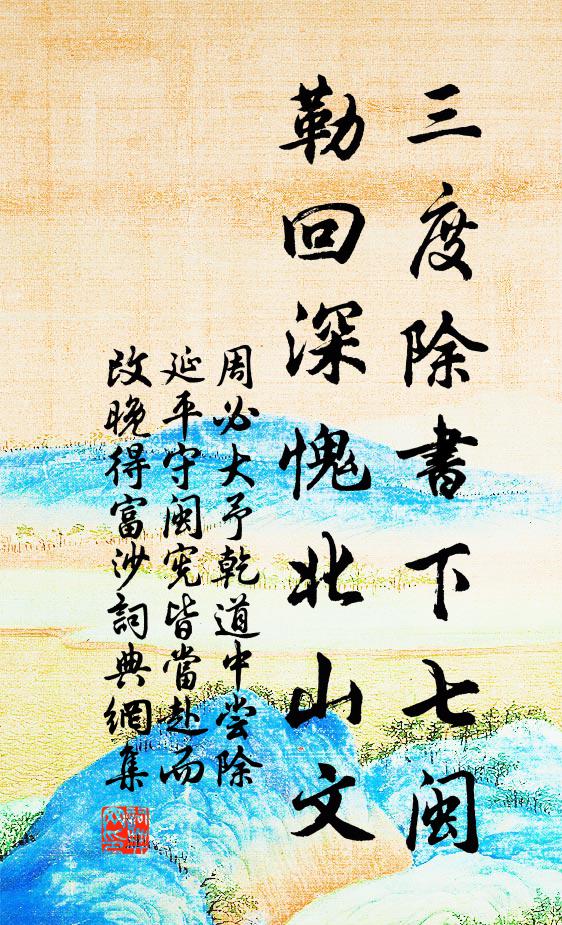 三度除書下七閩
勒回深愧北山文
周必大予乾道中尝除
延平守闽宪皆當赴而
改晚得富沙詞典網集